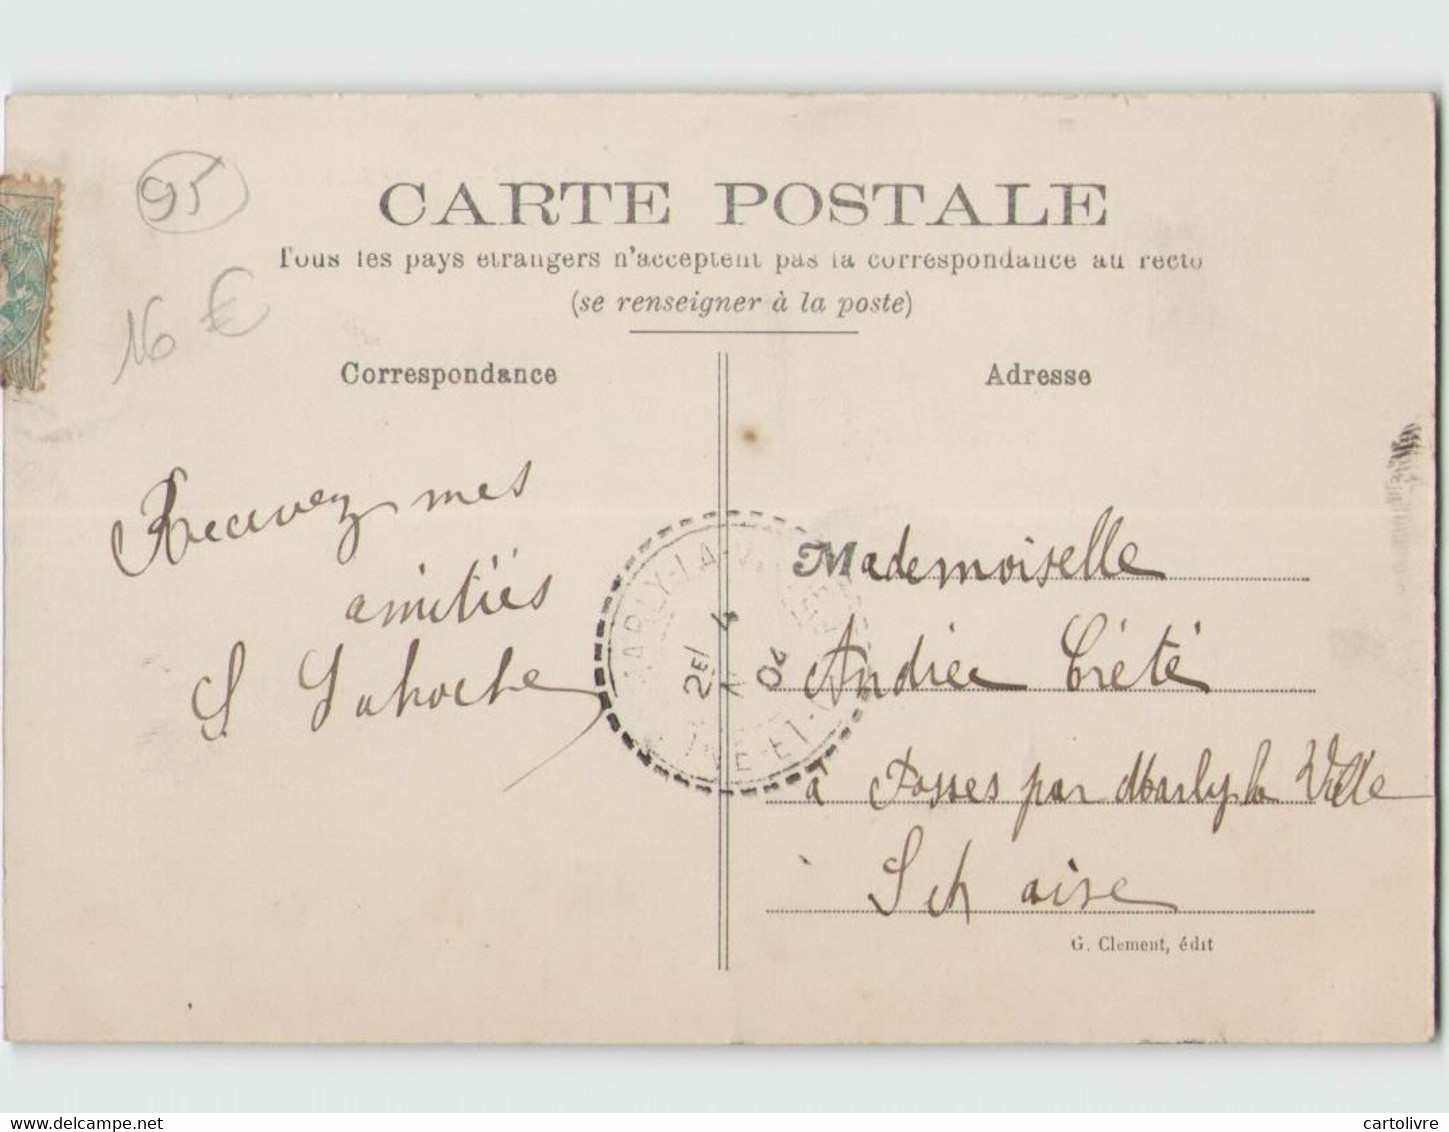 95
16 €
CARTE POSTALE
Tous les pays étrangers n'acceptent pas la correspondance au recto
(se renseigner à la poste)
Correspondance
Adresse
Recevez mes
amitiés
S Lahoche
MARLY-LA-V
2E / 4
04
NE-ET-
Mademoiselle
Andrée Crété
à Fosses par Marly la Ville
S et oise
G. Clement, édit
cartolivre